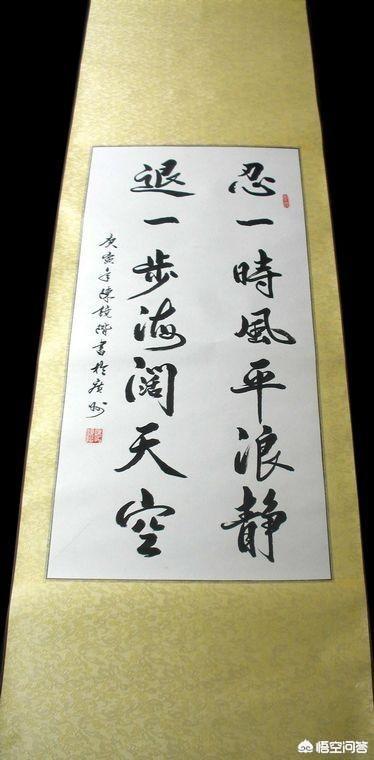 忍一時風平浪静
退一步海阔天空
庚寅年陳鏡階書於廣州
悟空问答